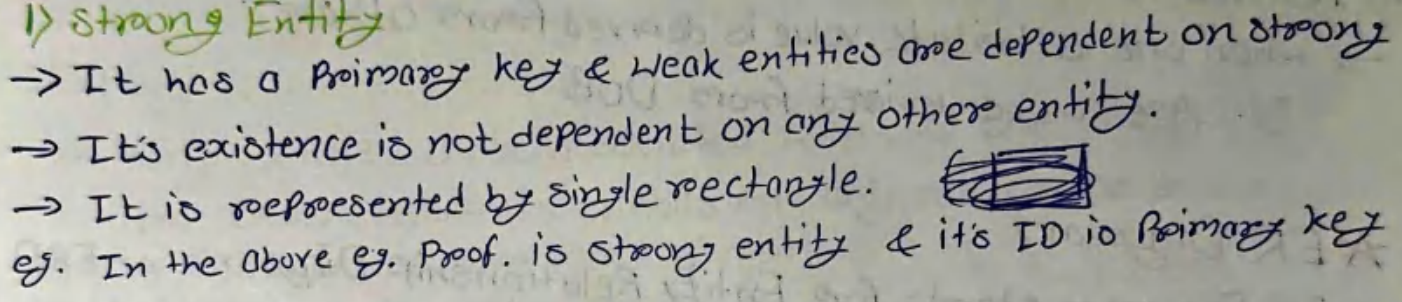 1) Strong Entity
→ It has a Primary key & weak entities are dependent on strong
→ It's existence is not dependent on any other entity.
→ It is represented by single rectangle.
eg. In the above eg. Prof. is strong entity & it's ID is Primary key